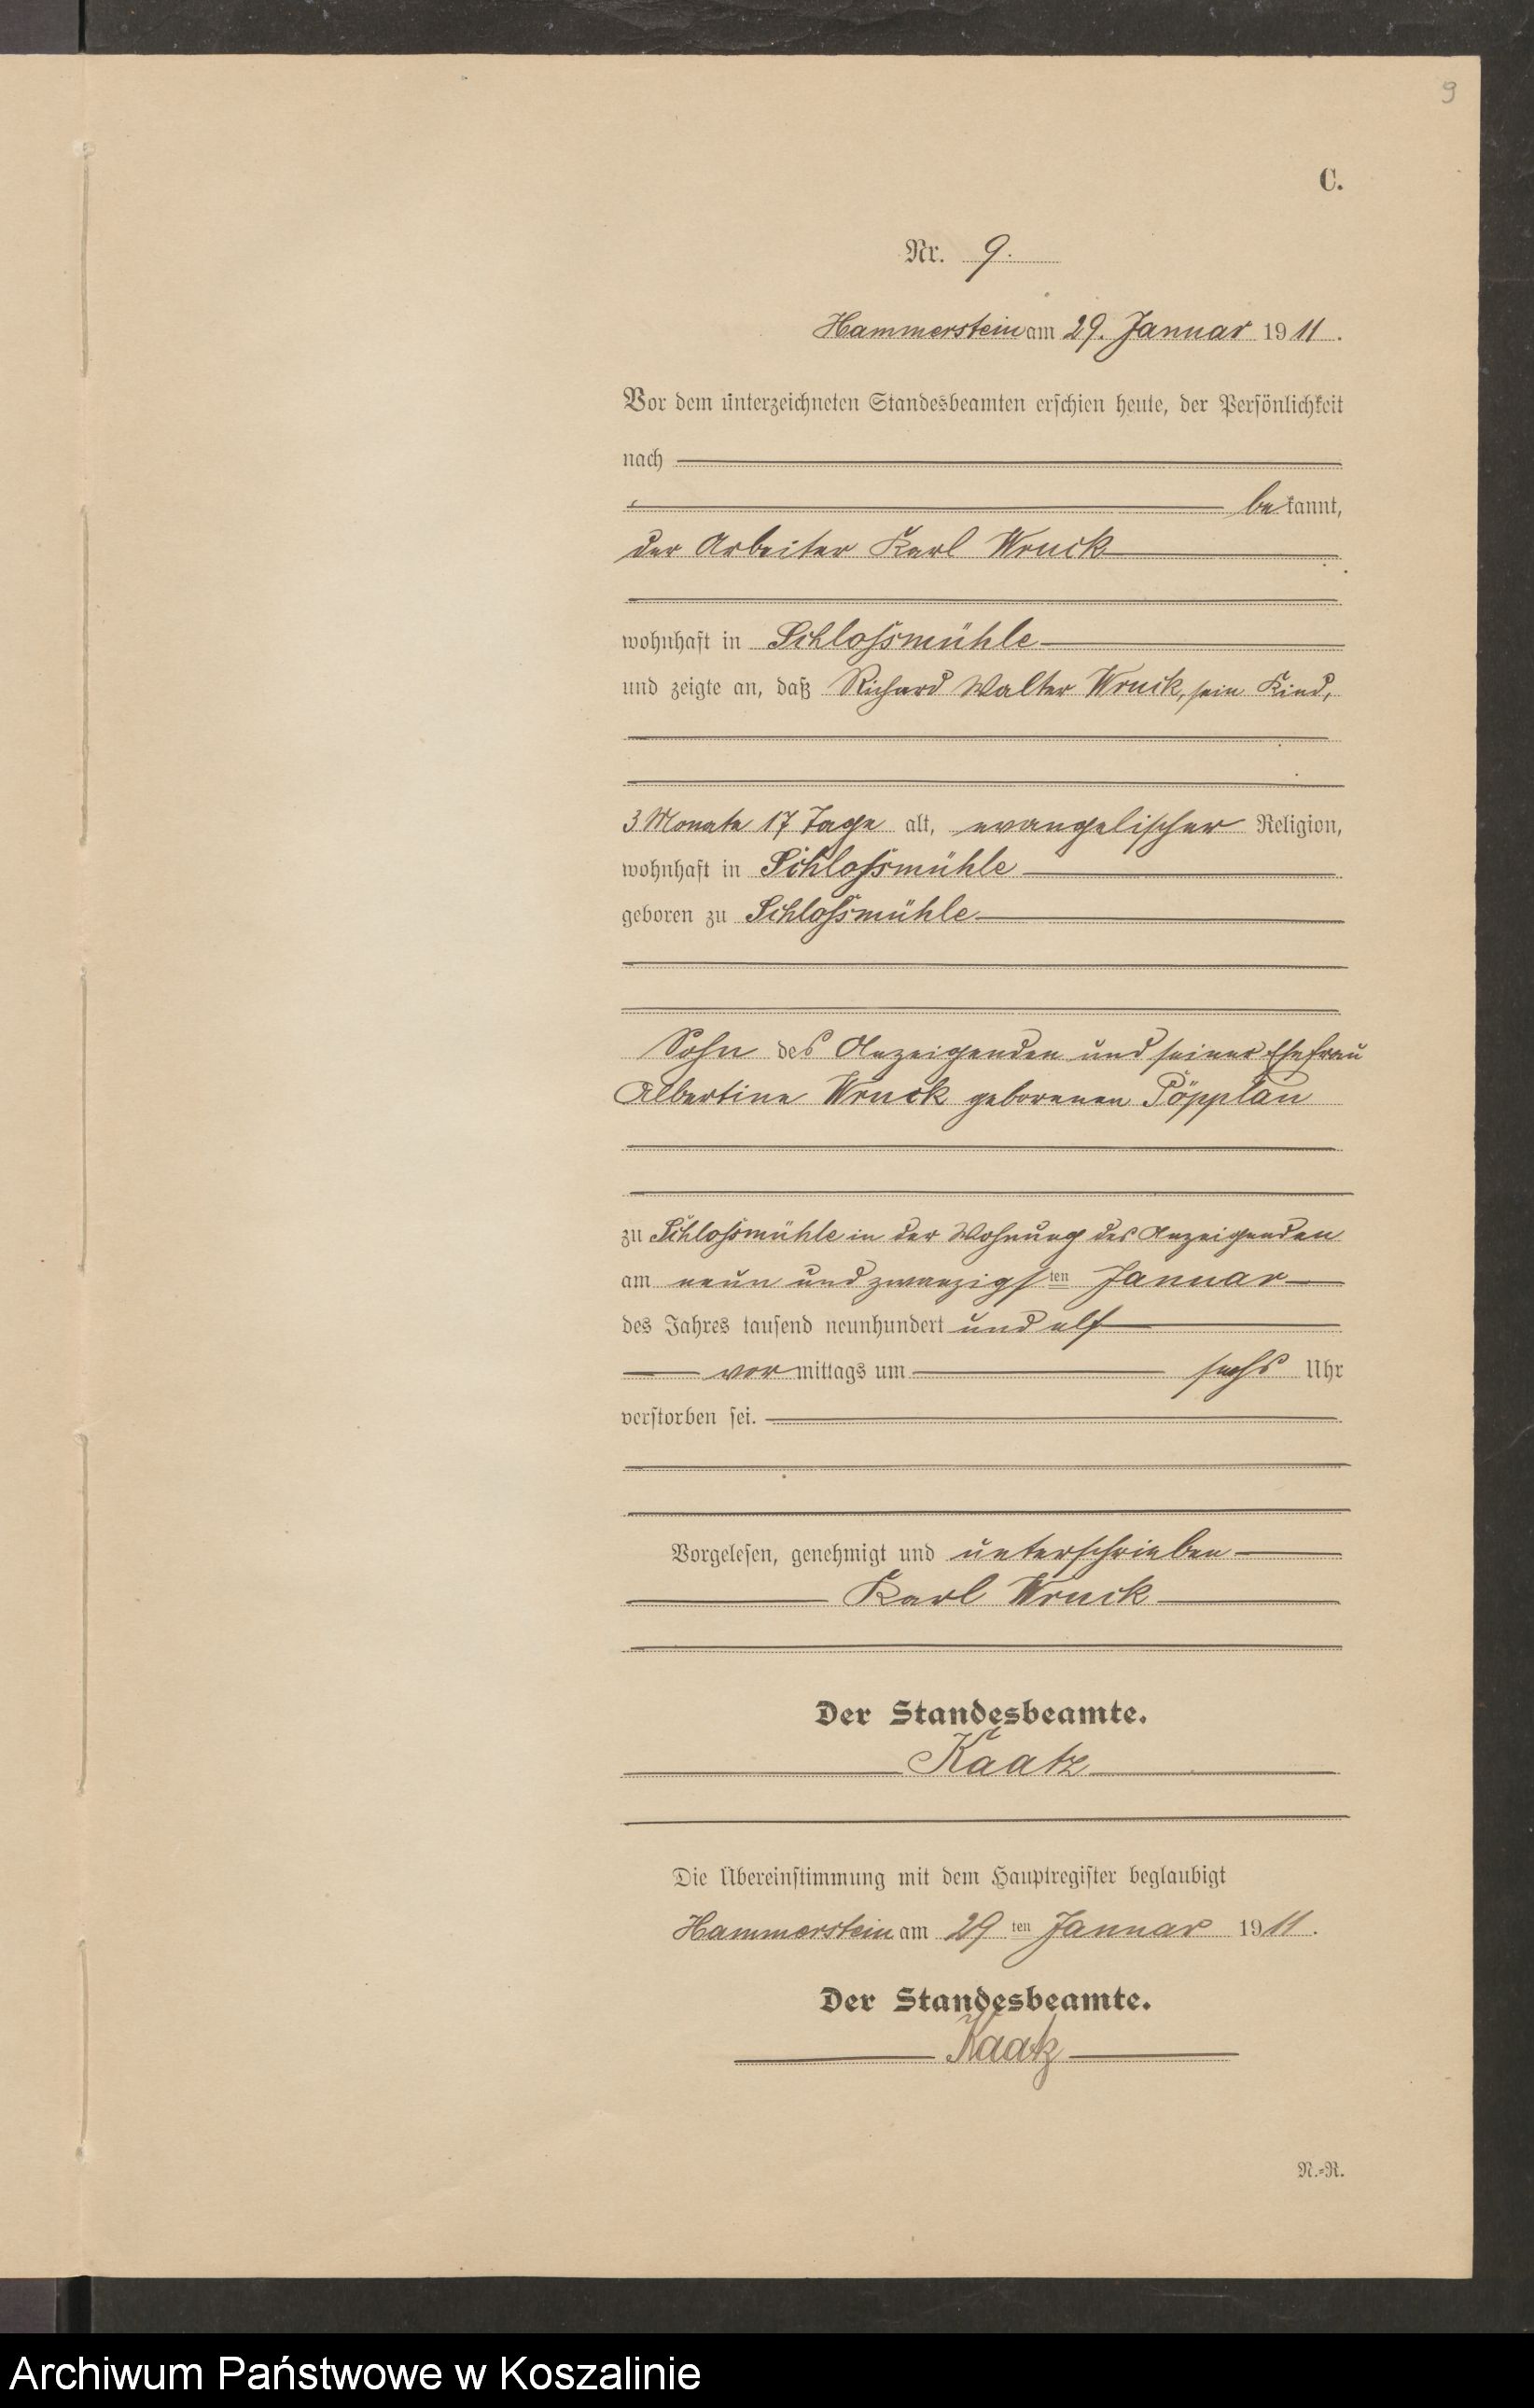 9
C.
Nr. 9.
Hammerstein am 29. Januar 1911.
Vor dem unterzeichneten Standesbeamten erschien heute, der Persönlichkeit
nach
bekannt,
der Arbeiter Karl Wruck
wohnhaft in Schloßmühle
und zeigte an, daß Richard Walter Wruck, sein Kind,
3 Monate 17 Tage alt, evangelischer Religion,
wohnhaft in Schloßmühle
geboren zu Schloßmühle
Sohn des Anzeigenden und seiner Ehefrau
Albertine Wruck geborenen Pöpplau
zu Schloßmühle in der Wohnung des Anzeigenden
am neun und zwanzigsten Januar
des Jahres tausend neunhundert und elf
vormittags um sechs Uhr
verstorben sei.
Vorgelesen, genehmigt und unterschrieben
Karl Wruck
Der Standesbeamte.
Kaatz
Die Übereinstimmung mit dem Hauptregister beglaubigt
Hammerstein am 29ten Januar 1911.
Der Standesbeamte.
Kaatz
N.=R.
Archiwum Państwowe w Koszalinie